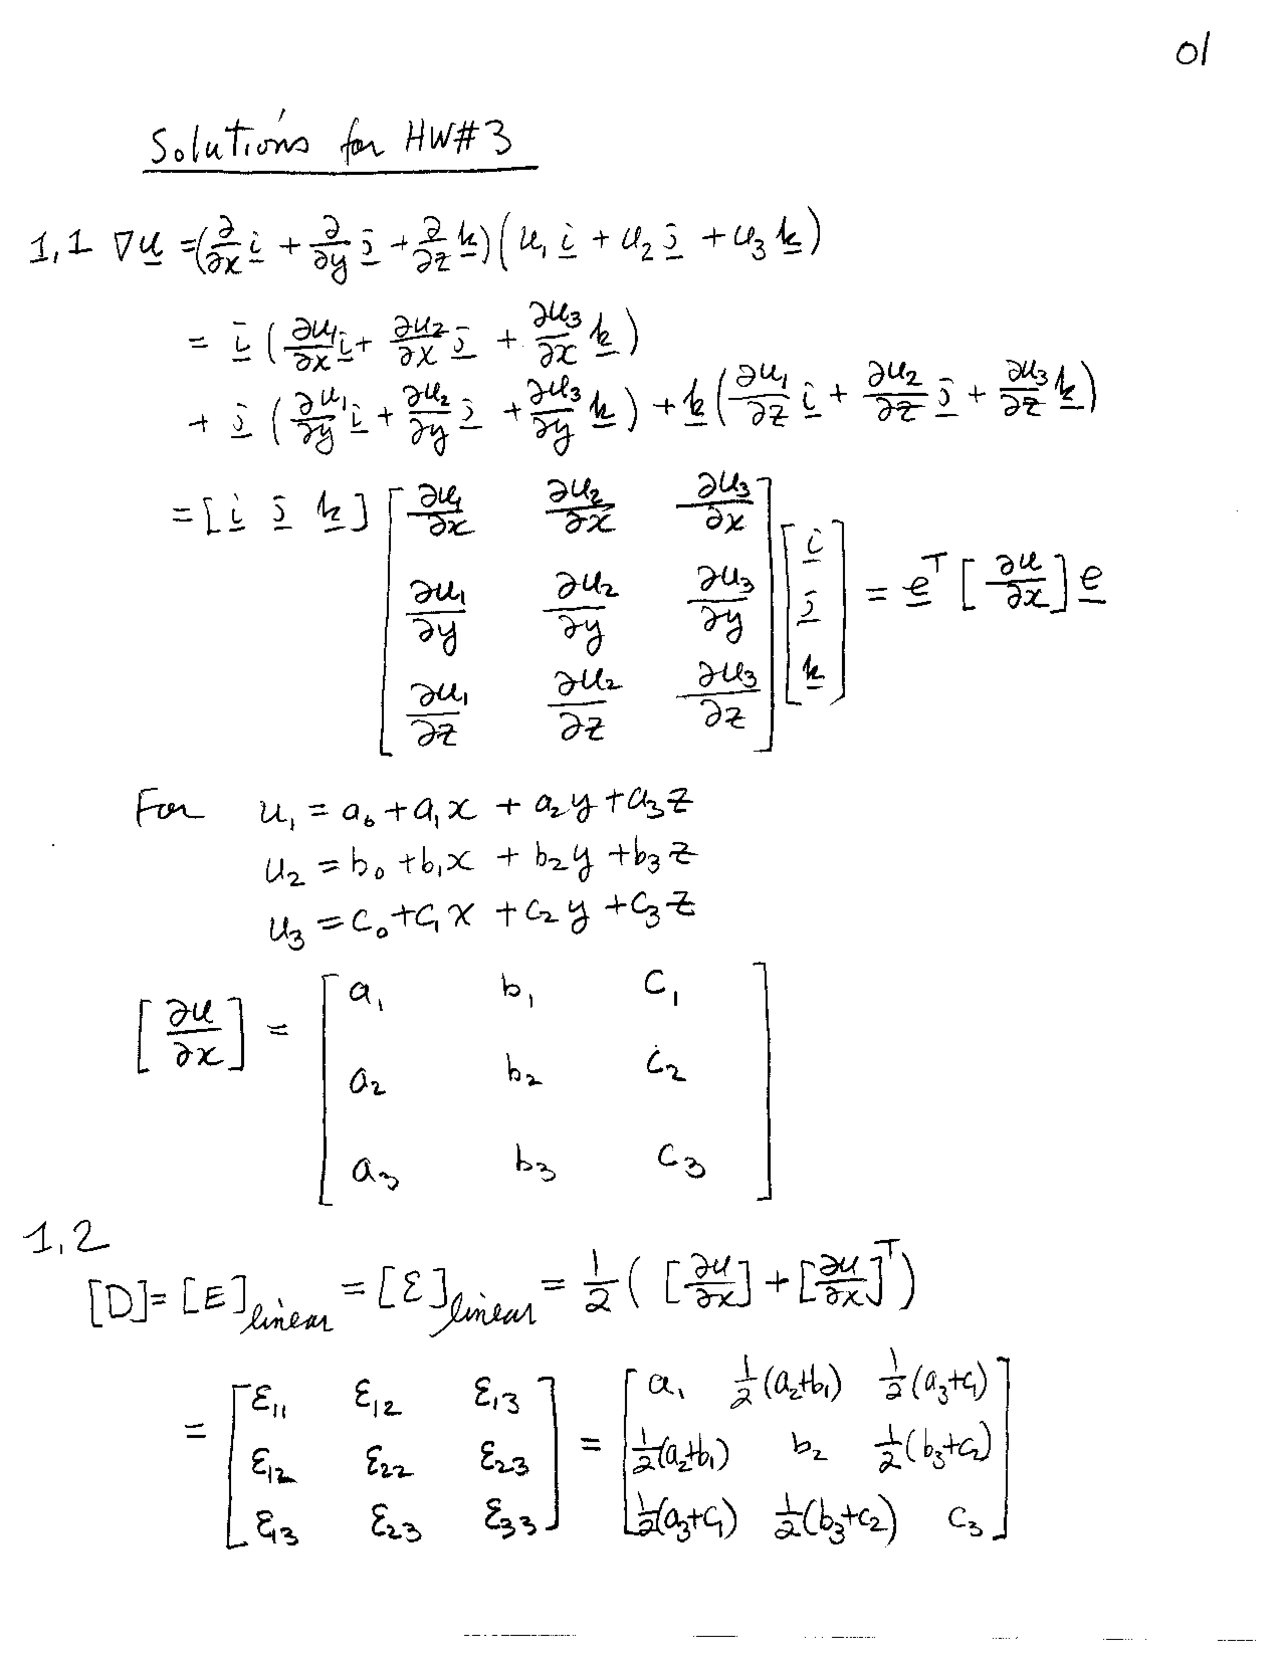 01
Solutions for HW#3
1,1 ∇u̲ = (∂/∂x i̲ + ∂/∂y j̲ + ∂/∂z k̲)(u₁ i̲ + u₂ j̲ + u₃ k̲)
= i̲ (∂u₁/∂x i̲ + ∂u₂/∂x j̲ + ∂u₃/∂x k̲)
+ j̲ (∂u₁/∂y i̲ + ∂u₂/∂y j̲ + ∂u₃/∂y k̲) + k̲ (∂u₁/∂z i̲ + ∂u₂/∂z j̲ + ∂u₃/∂z k̲)
= [i̲ j̲ k̲] [∂u₁/∂x ∂u₂/∂x ∂u₃/∂x
∂u₁/∂y ∂u₂/∂y ∂u₃/∂y
∂u₁/∂z ∂u₂/∂z ∂u₃/∂z] [i̲ j̲ k̲] = e̲ᵀ [∂u/∂x] e̲
For u₁ = a₀ + a₁x + a₂y + a₃z
u₂ = b₀ + b₁x + b₂y + b₃z
u₃ = c₀ + c₁x + c₂y + c₃z
[∂u/∂x] = [a₁ b₁ c₁
a₂ b₂ c₂
a₃ b₃ c₃]
1,2
[D] = [E]linear = [ε]linear = 1/2 ( [∂u/∂x] + [∂u/∂x]ᵀ )
= [ε₁₁ ε₁₂ ε₁₃ = [a₁ 1/2(a₂+b₁) 1/2(a₃+c₁)
ε₁₂ ε₂₂ ε₂₃ 1/2(a₂+b₁) b₂ 1/2(b₃+c₂)
ε₁₃ ε₂₃ ε₃₃] 1/2(a₃+c₁) 1/2(b₃+c₂) c₃]